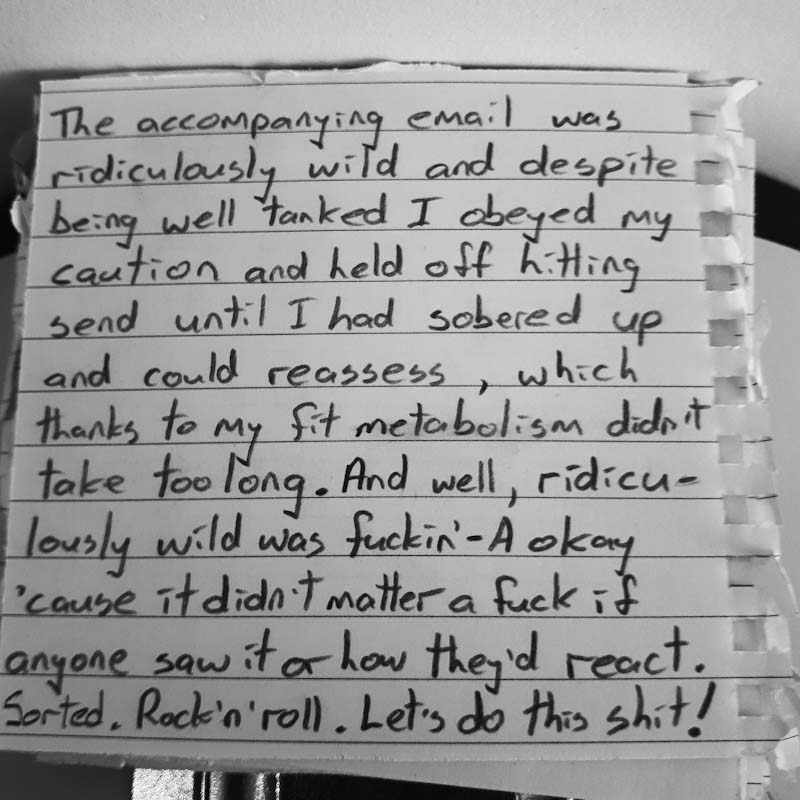 The accompanying email was
ridiculously wild and despite
being well tanked I obeyed my
caution and held off hitting
send until I had sobered up
and could reassess, which
thanks to my fit metabolism didn't
take too long. And well, ridicu-
lously wild was fuckin'-A okay
'cause it didn't matter a fuck if
anyone saw it or how they'd react.
Sorted. Rock'n'roll. Let's do this shit!